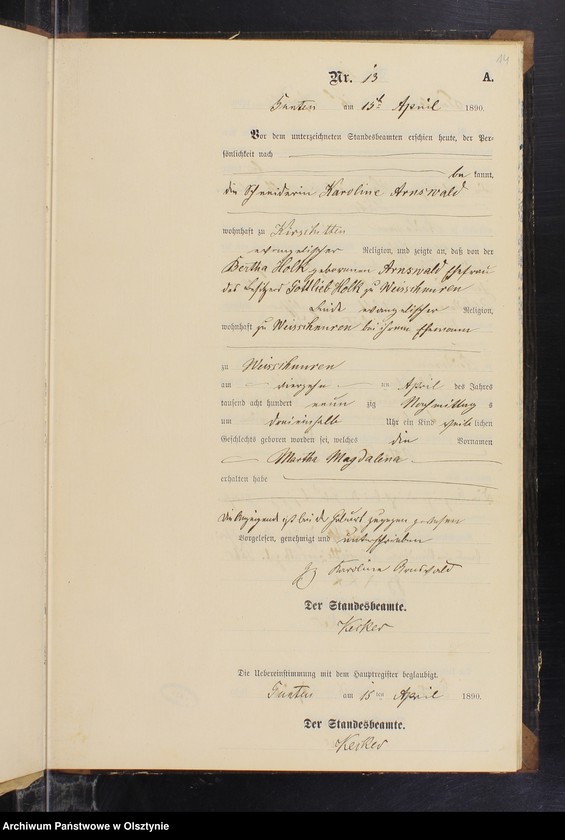 14
Nr. 13 A.
am 15t April 1890.
Vor dem unterzeichneten Standesbeamten erschien heute, der Per-
sönlichkeit nach
be kannt,
die Schneiderin Karoline Arnswald
wohnhaft zu
evangelischer Religion, und zeigte an, daß von der
Bertha Holk geborenen Arnswald Ehefrau
des Besitzers Gottlieb Holk zu Weisschnuren
beide evangelischer Religion,
wohnhaft zu Weisschnuren bei ihrem Ehemann
zu Weisschnuren
am vierzehn ten April des Jahres
tausend acht hundert neun zig Nachmittag s
um drei einhalb Uhr ein Kind weib lichen
Geschlechts geboren worden sei, welches die Vornamen
Martha Magdalena
erhalten habe
Die Anzeigende ist bei der Geburt zugegen gewesen
Vorgelesen, genehmigt und unterschrieben
gz Karoline Arnswald
Der Standesbeamte.
Kesker
Die Uebereinstimmung mit dem Hauptregister beglaubigt.
am 15ten April 1890.
Der Standesbeamte.
Kesker
Archiwum Państwowe w Olsztynie